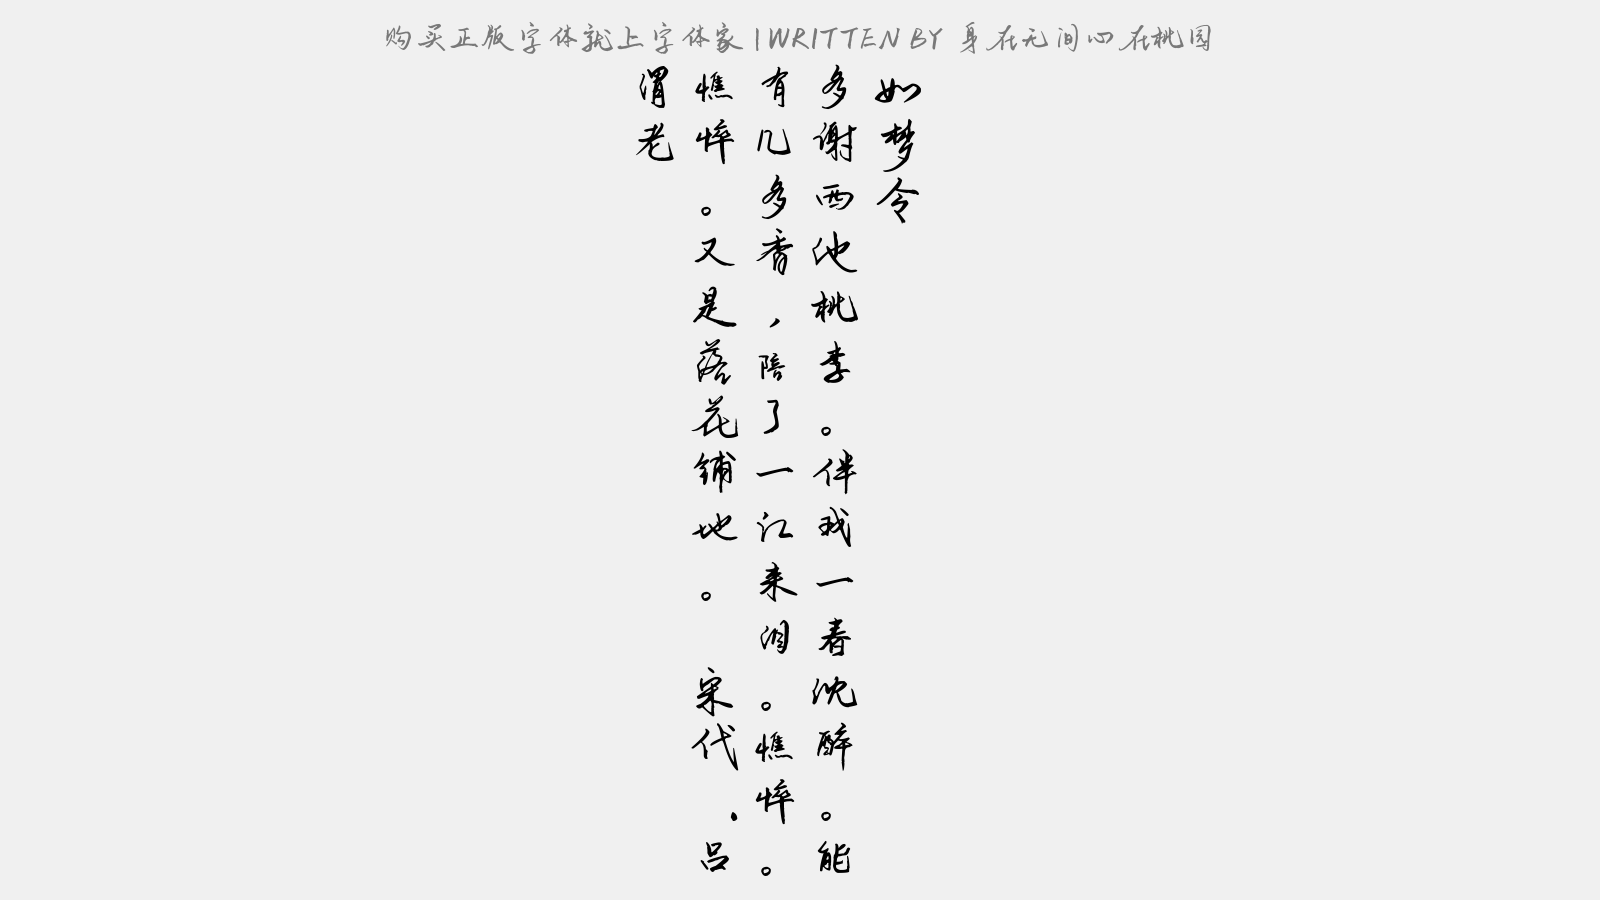 购买正版字体就上字体家 |WRITTEN BY 身在无间心在桃园
如梦令
多谢西池桃李。伴我一春沈醉。能
有几多香，陪了一江来泪。憔悴。
憔悴。又是落花铺地。 宋代.吕
渭老